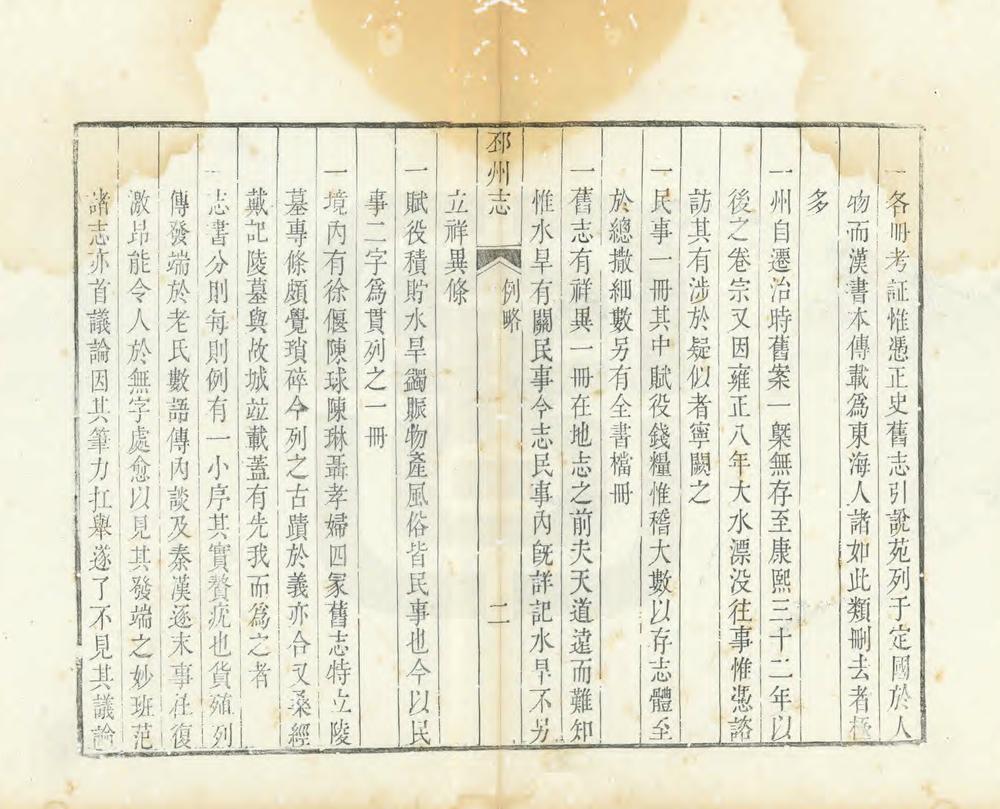 一各冊考証惟憑正史舊志引說苑列于定國於人
物而漢書本傳載爲東海人諸如此類刪去者極
多
一州自遷治時舊案一槩無存至康熙三十二年以
後之卷宗又因雍正八年大水漂没往事惟憑諮
訪其有涉於疑似者寧闕之
一民事一冊其中賦役錢糧惟稽大數以存志體至
於總撒細數另有全書檔冊
一舊志有祥異一冊在地志之前夫天道遠而難知
惟水旱有關民事今志民事內旣詳記水旱不另
邳州志
例略
二
立祥異條
一賦役積貯水旱蠲賑物產風俗皆民事也今以民
事二字爲貫列之一冊
一境內有徐偃陳球陳琳聶孝婦四冢舊志特立陵
墓專條頗覺瑣碎今列之古蹟於義亦合又桑經
戴記陵墓與故城竝載蓋有先我而爲之者
一志書分則每則例有一小序其實贅疣也貨殖列
傳發端於老氏數語傳內談及秦漢逐末事往復
激昂能令人於無字處愈以見其發端之妙班范
諸志亦首議論因其筆力扛舉遂了不見其議論